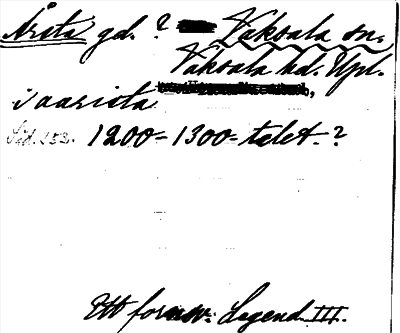 Årsta gd. ? Vaksala sn.
Vaksala hd. Upl.
i aarista
Sid. 153. 1200 = 1300 = talet. ?
Ett fornsv. Legend. III.